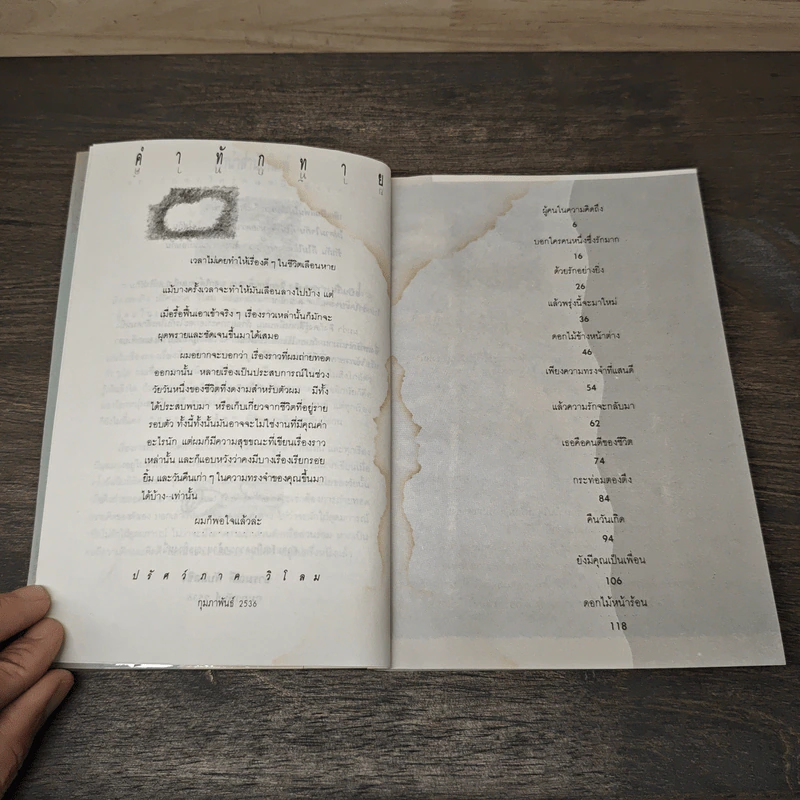 คำทักทาย
เวลาไม่เคยทำให้เรื่องดี ๆ ในชีวิตเลือนหาย
แม้บางครั้งเวลาจะทำให้มันเลือนลางไปบ้าง แต่
เมื่อรื้อฟื้นเอาเข้าจริง ๆ เรื่องราวเหล่านั้นก็มักจะ
ผุดพรายและชัดเจนขึ้นมาได้เสมอ
ผมอยากจะบอกว่า เรื่องราวที่ผมถ่ายทอด
ออกมานั้น หลายเรื่องเป็นประสบการณ์ในช่วง
วัยวันหนึ่งของชีวิตที่งดงามสำหรับตัวผม มีทั้ง
ได้ประสบพบมา หรือเก็บเกี่ยวจากชีวิตที่อยู่ราย
รอบตัว ทั้งนี้ทั้งนั้นมันอาจจะไม่ใช่งานที่มีคุณค่า
อะไรนัก แต่ผมก็มีความสุขขณะที่เขียนเรื่องราว
เหล่านั้น และก็แอบหวังว่าคงมีบางเรื่องเรียกรอย
ยิ้ม และวันคืนเก่า ๆ ในความทรงจำของคุณขึ้นมา
ได้บ้าง--เท่านั้น
ผมก็พอใจแล้วล่ะ
ปรัศว์ภาค วิโลม
กุมภาพันธ์ 2536
ผู้คนในความคิดถึง
6
บอกใครคนหนึ่งซึ่งรักมาก
16
ด้วยรักอย่างยิ่ง
26
แล้วพรุ่งนี้จะมาใหม่
36
ดอกไม้ข้างหน้าต่าง
46
เพียงความทรงจำที่แสนดี
54
แล้วความรักจะกลับมา
62
เธอคือคนดีของชีวิต
74
กระท่อมตองตึง
84
คืนวันเกิด
94
ยังมีคุณเป็นเพื่อน
106
ดอกไม้หน้าร้อน
118